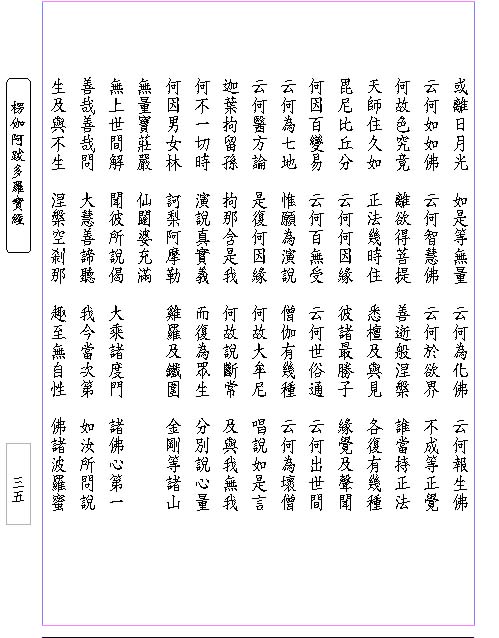 或離日月光　如是等無量　云何為化佛　云何報生佛
云何如如佛　云何智慧佛　云何於欲界　不成等正覺
何故色究竟　離欲得菩提　善逝般涅槃　誰當持正法
天師住久如　正法幾時住　悉檀及與見　各復有幾種
毘尼比丘分　云何何因緣　彼諸最勝子　緣覺及聲聞
何因百變易　云何百無受　云何世俗通　云何出世間
云何為七地　惟願為演說　僧伽有幾種　云何為壞僧
云何醫方論　是復何因緣　何故大牟尼　唱說如是言
迦葉拘留孫　拘那含是我　何故說斷常　及與我無我
何不一切時　演說真實義　而復為眾生　分別說心量
何因男女林　訶梨阿摩勒　雞羅及鐵圍　金剛等諸山
無量寶莊嚴　仙闥婆充滿
無上世間解　聞彼所說偈　大乘諸度門　諸佛心第一
善哉善哉問　大慧善諦聽　我今當次第　如汝所問說
生及與不生　涅槃空剎那　趣至無自性　佛諸波羅蜜
楞伽阿跋多羅寶經
三五